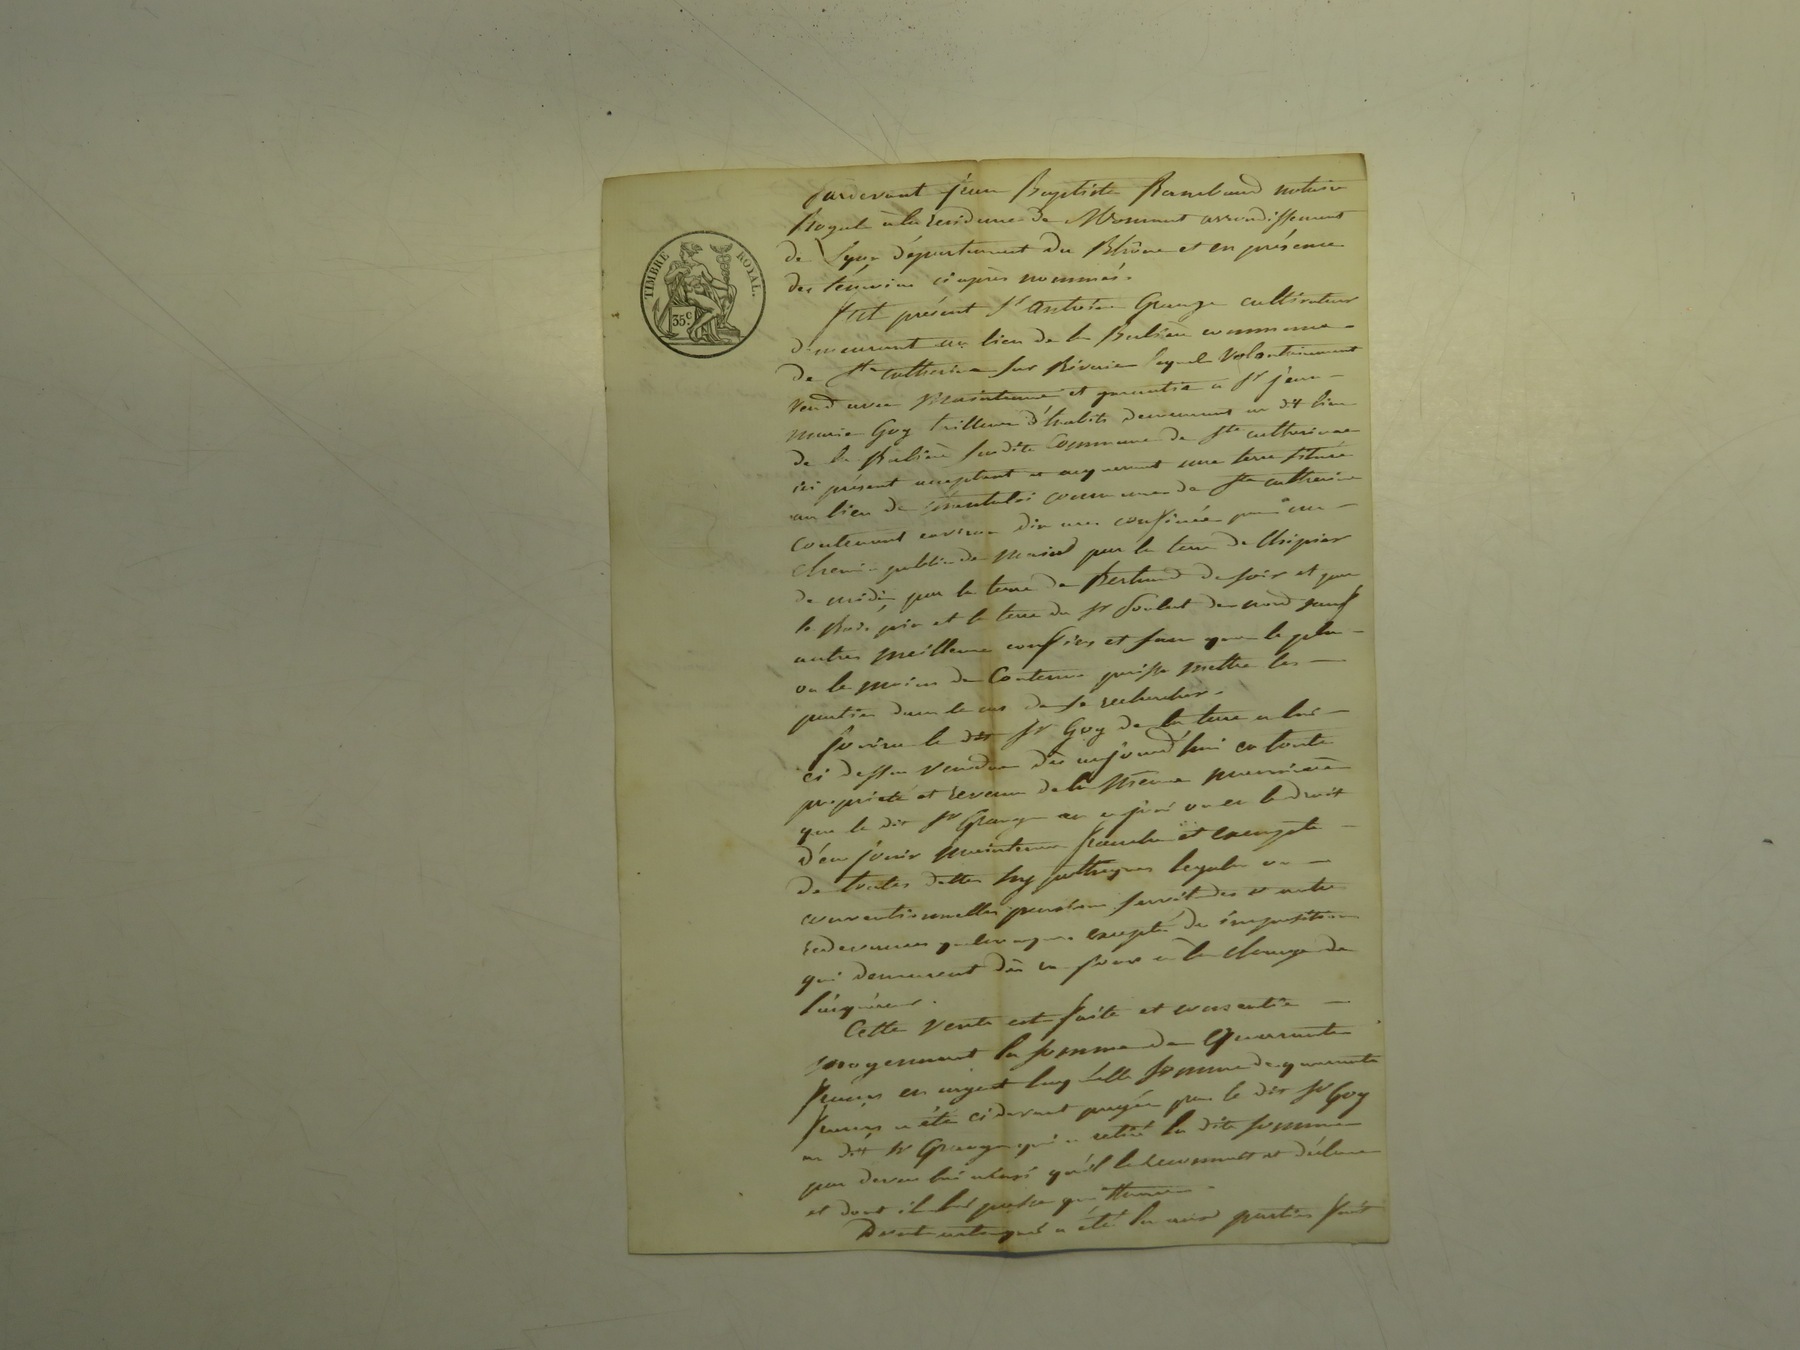 TIMBRE ROYAL.
35c.
Pardevant jean Baptiste notaire
Royale à la residence de Mornant arrondissement
de Lyon département du Rhône et en présence
des témoins ci après nommés.
fut présent Sr antoine Grange cultivateur
demeurant au lieu de la commune
de Ste catherine sur Riverie lequel volontairement
vend avec maintenue et garantie a Sr jean
marie Goy tailleur d'habits demeurant au dit lieu
de la susdite Commune de Ste catherine
ici présent acceptant et acquerant une terre située
au lieu de commune de Ste catherine
contenant environ dix ares confinée par un
chemin public de matin par la terre de
de midi, par la terre de Bertrand de soir et par
le et la terre du Sr de nord sauf
autres meilleurs confins et sans que le plus
ou le moins de Contenu puisse mettre les
parties dans le cas de se rechercher.
Jouira le dit Sr Goy de la terre a lui
ci dessus vendue dès aujourd'hui en toute
propriété et revenu de la même manière
que le dit Sr Grange en a joui ou eu le droit
d'en jouir maintenue franche et exempte
de toutes dettes hypothèques legales ou
conventionnelles pensions servitudes et autres
redevances quelconques excepté de impositions
qui demeurent dès ce jour a la charge de
l'aquéreur.
Cette vente est faite et consentie
moyennant la somme de Quarante
francs en argent laquelle somme de quarante
francs a été ci devant payée par le dit Sr Goy
au dit Sr Grange qui a retiré la dite somme
par devers lui ainsi qu'il le reconnait et déclare
et dont il lui passe quittance.
Dont acte qui a été lu aux parties fait